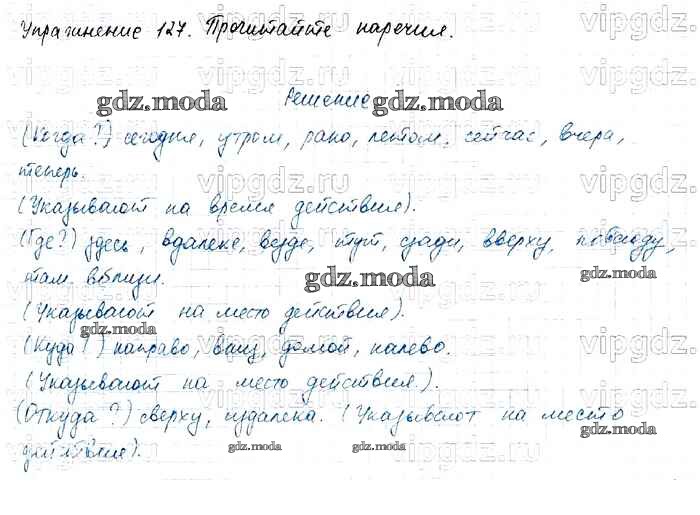 Упражнение 127. Прочитайте наречия.
Решение
(Когда?) сегодня, утром, рано, летом, сейчас, вчера,
теперь.
(Указывают на время действия).
(Где?) здесь, вдалеке, везде, тут, сзади, вверху, повсюду,
там, вблизи.
(Указывают на место действия).
(Куда?) направо, вниз, домой, налево.
(Указывают на место действия.).
(Откуда?) сверху, издалека. (Указывают на место
действия).
gdz.moda
gdz.moda
gdz.moda
gdz.moda
gdz.moda
gdz.moda
gdz.moda
gdz.moda
gdz.moda
vipgdz.ru
vipgdz.ru
vipgdz.ru
vipgdz.ru
vipgdz.ru
vipgdz.ru
vipgdz.ru
vipgdz.ru
vipgdz.ru
vipgdz.ru